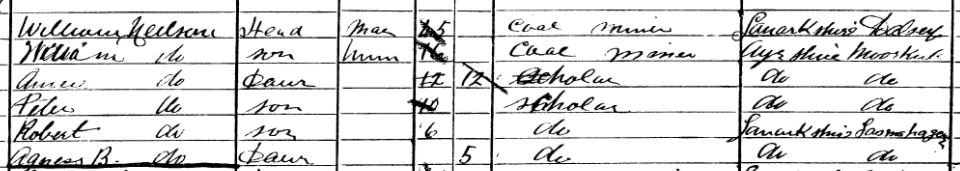 William Neilson Head Mar 45 Coal Miner Lanarkshire Dalserf
William do son Unm 16 Coal Miner Ayrshire Muirkirk
Annie do Daur 12 12 Scholar do do
Peter do son 10 Scholar do do
Robert do son 6 do Lanarkshire Lesmahagow
Agness B. do Daur 5 do do do